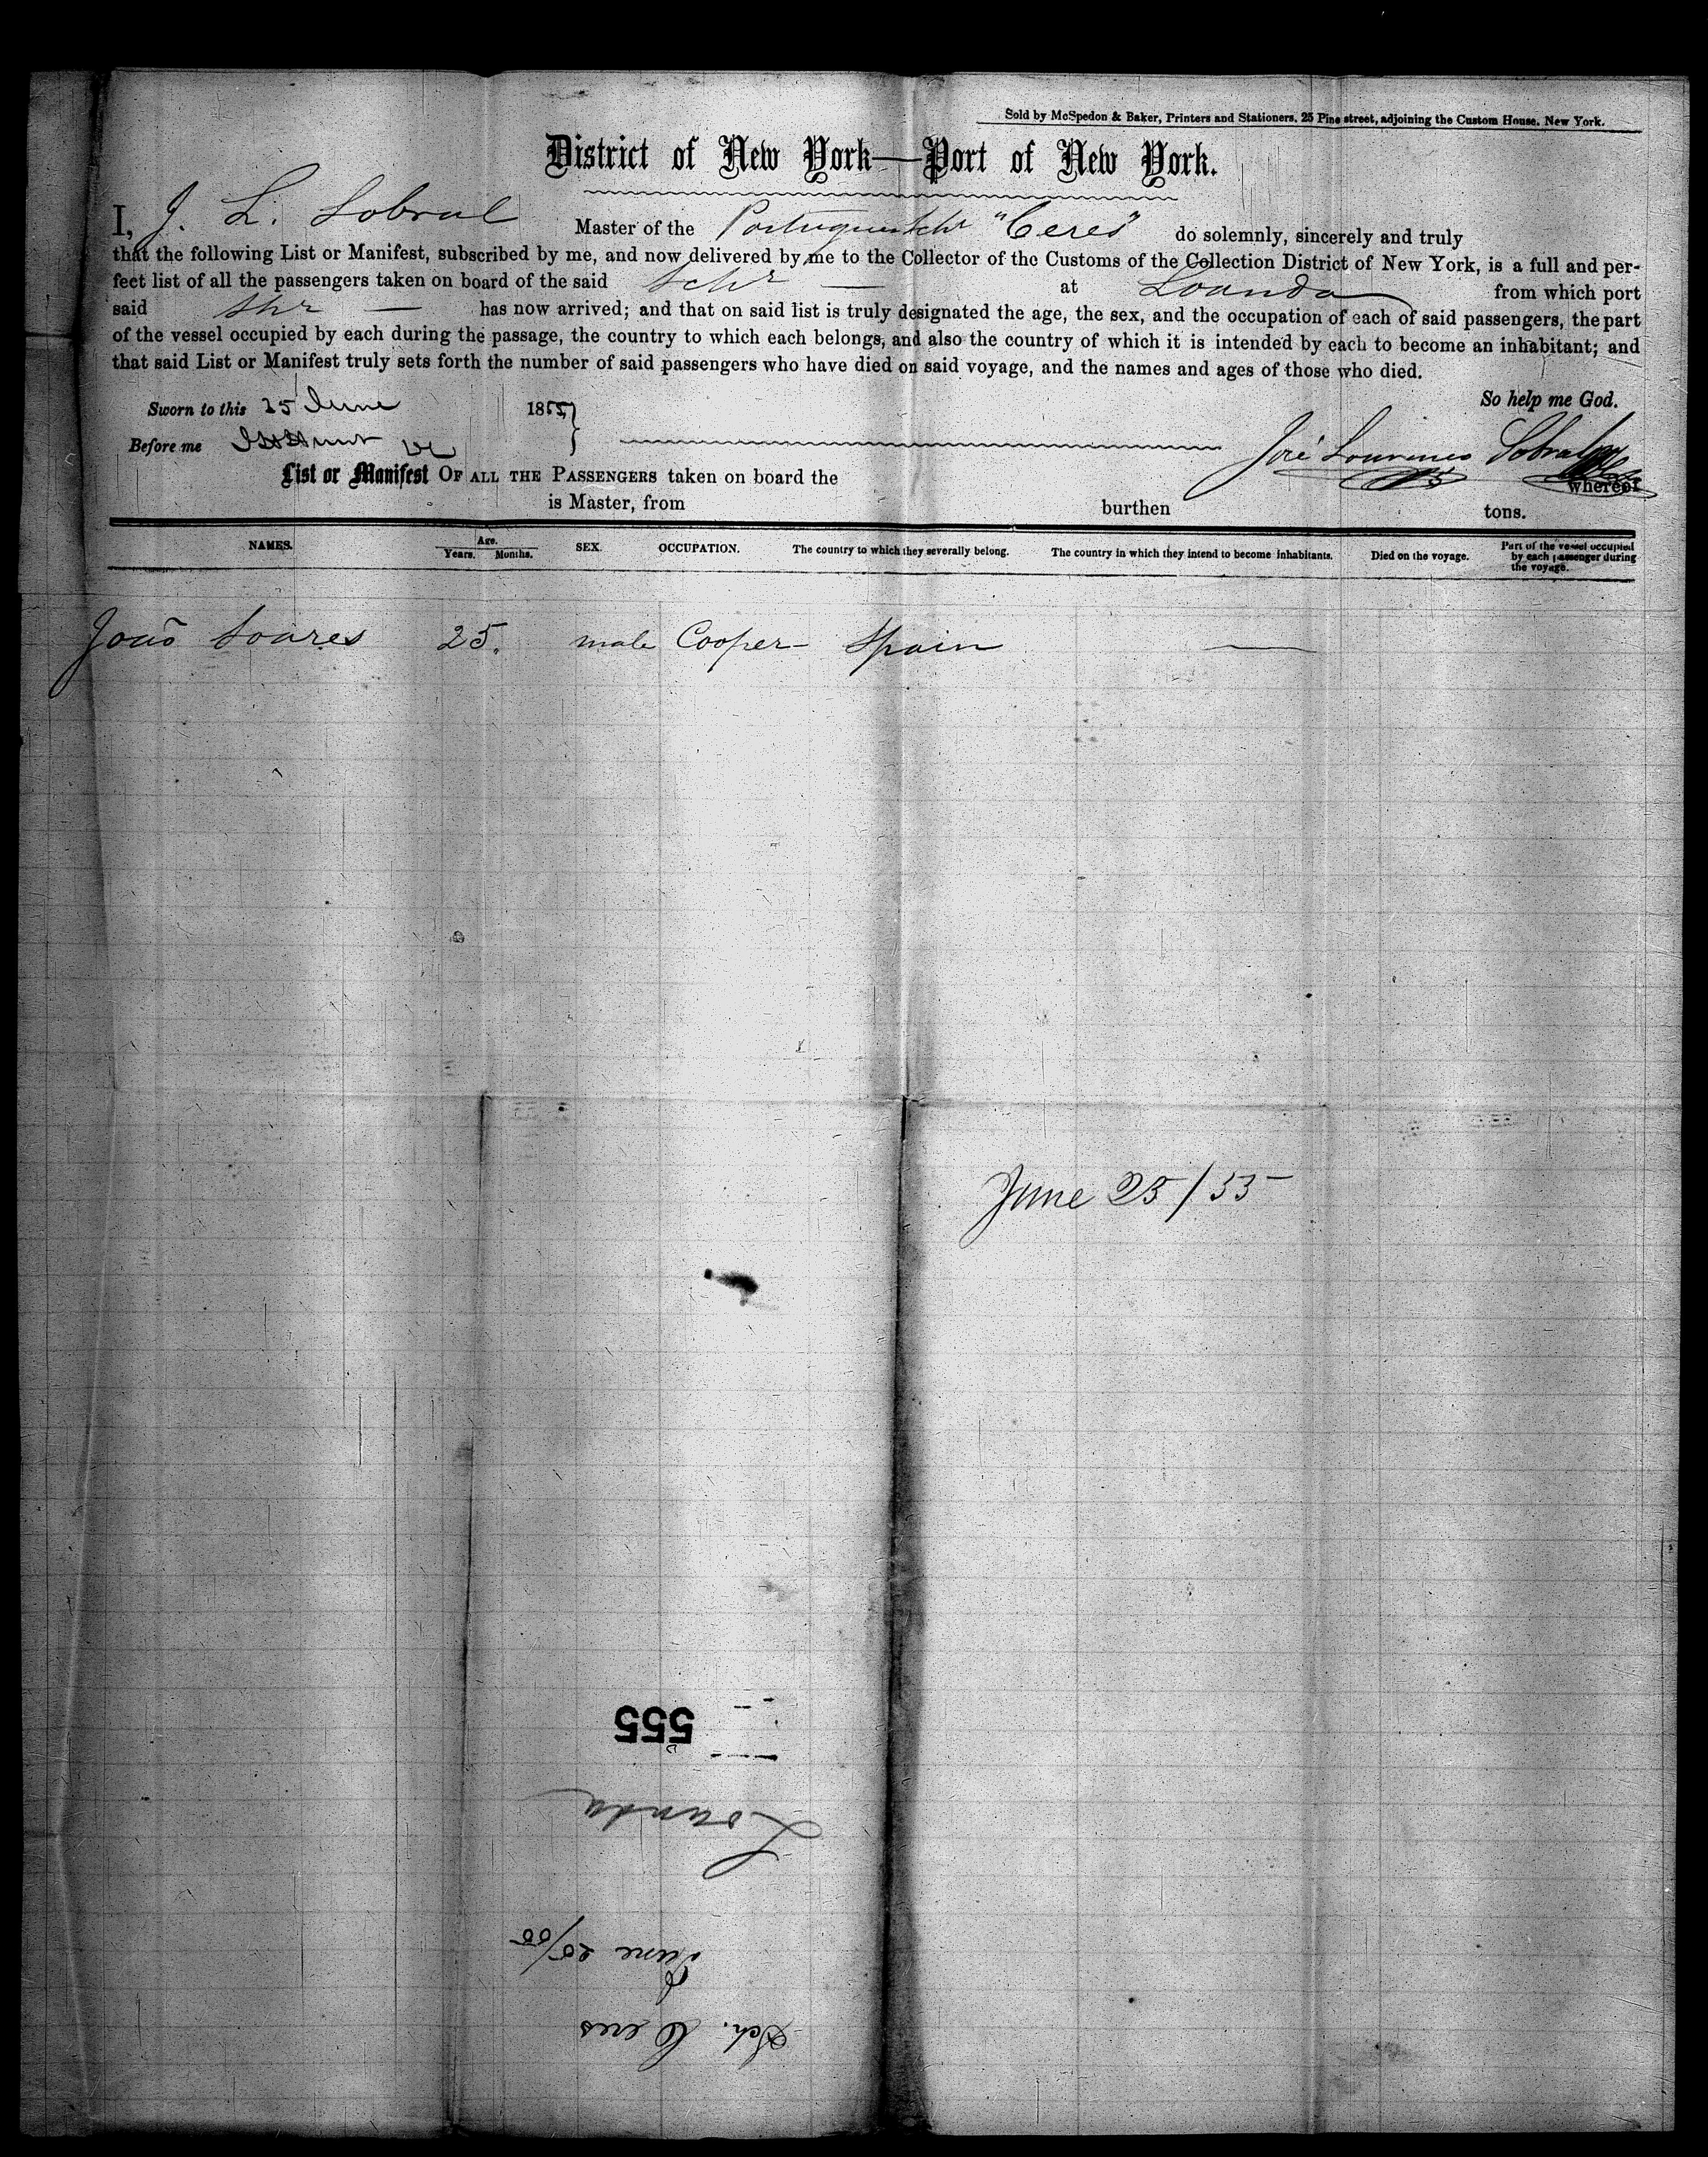 Sold by McSpedon & Baker, Printers and Stationers, 25 Pine street, adjoining the Custom House, New York.
District of New York—Port of New York.
I, J. L. Sobral Master of the Portuguese Schr "Ceres" do solemnly, sincerely and truly
that the following List or Manifest, subscribed by me, and now delivered by me to the Collector of the Customs of the Collection District of New York, is a full and per-
fect list of all the passengers taken on board of the said Schr — at Loanda from which port
said Shr — has now arrived; and that on said list is truly designated the age, the sex, and the occupation of each of said passengers, the part
of the vessel occupied by each during the passage, the country to which each belongs, and also the country of which it is intended by each to become an inhabitant; and
that said List or Manifest truly sets forth the number of said passengers who have died on said voyage, and the names and ages of those who died.
So help me God.
Sworn to this 25 June 1855
Before me
José Lourenço Sobral
List or Manifest OF ALL THE PASSENGERS taken on board the whereof
is Master, from burthen tons.
NAMES. Age. Years. Months. SEX. OCCUPATION. The country to which they severally belong. The country in which they intend to become inhabitants. Died on the voyage. Part of the vessel occupied by each passenger during the voyage.
Joaõ Soares 25. male Cooper Spain —
June 25/55
Sch. Ceres
June 25/55
Loanda
555